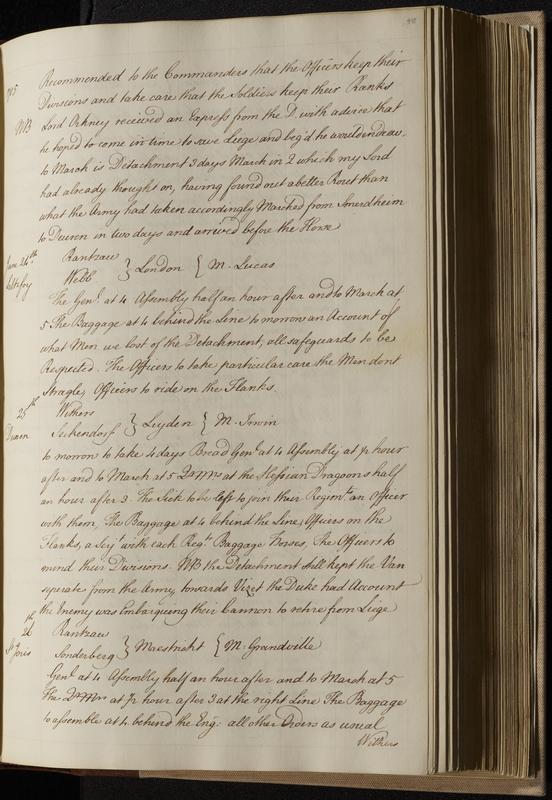 Recommended to the Commanders that the Officers keep their
Divisions and take care that the Soldiers keep their Ranks
NB Lord Orkney received an Express from the D. with advice that
he hoped to come in time to save Liege and beg'd he would endeavr.
to March is Detachment 3 days March in 2 which my Lord
had already thought on, having found out a better Rout than
what the Army had taken accordingly Marched from
to Deuren in two days and arrived before the Horse
June 24th Rantzau
Webb } London { M. Lucas
The Genl. at 4 Assembly half an hour after and to March at
5 The Baggage at 4 behind the Line to morrow an Account of
what Men we lost of the Detachment, all safeguards to be
Respected. The Officers to take particular care the Men dont
stragle, Officers to ride on the Flanks.
25th Withers
Duren Seikendorf } Leyden { M. Irwin
to morrow to take 4 days Bread Genl. at 4 Assembly at ½ hour
after and to March at 5 Qr Mrs at the Hessian Dragoons half
an hour after 3. The Sick to be left to join their Regimt. an Officer
with them, The Baggage at 4 behind the Line, Officers on the
Flanks, a Serjt. with each Regt. Baggage Horses, The Officers to
mind their Divisions. NB the Detachment still kept the Van
seperate from the Army, towards Vizet the Duke had Account
the Enemy was Embarquing their Cannon to retire from Liege
26th Rantzau
Sonderberg } Maestricht { M. Grandville
Genl. at 4 Assembly half an hour after and to March at 5
The Qr Mrs at ½ hour after 3 at the right Line The Baggage
to assemble at 4 behind the Eng: all other Orders as usual
Withers